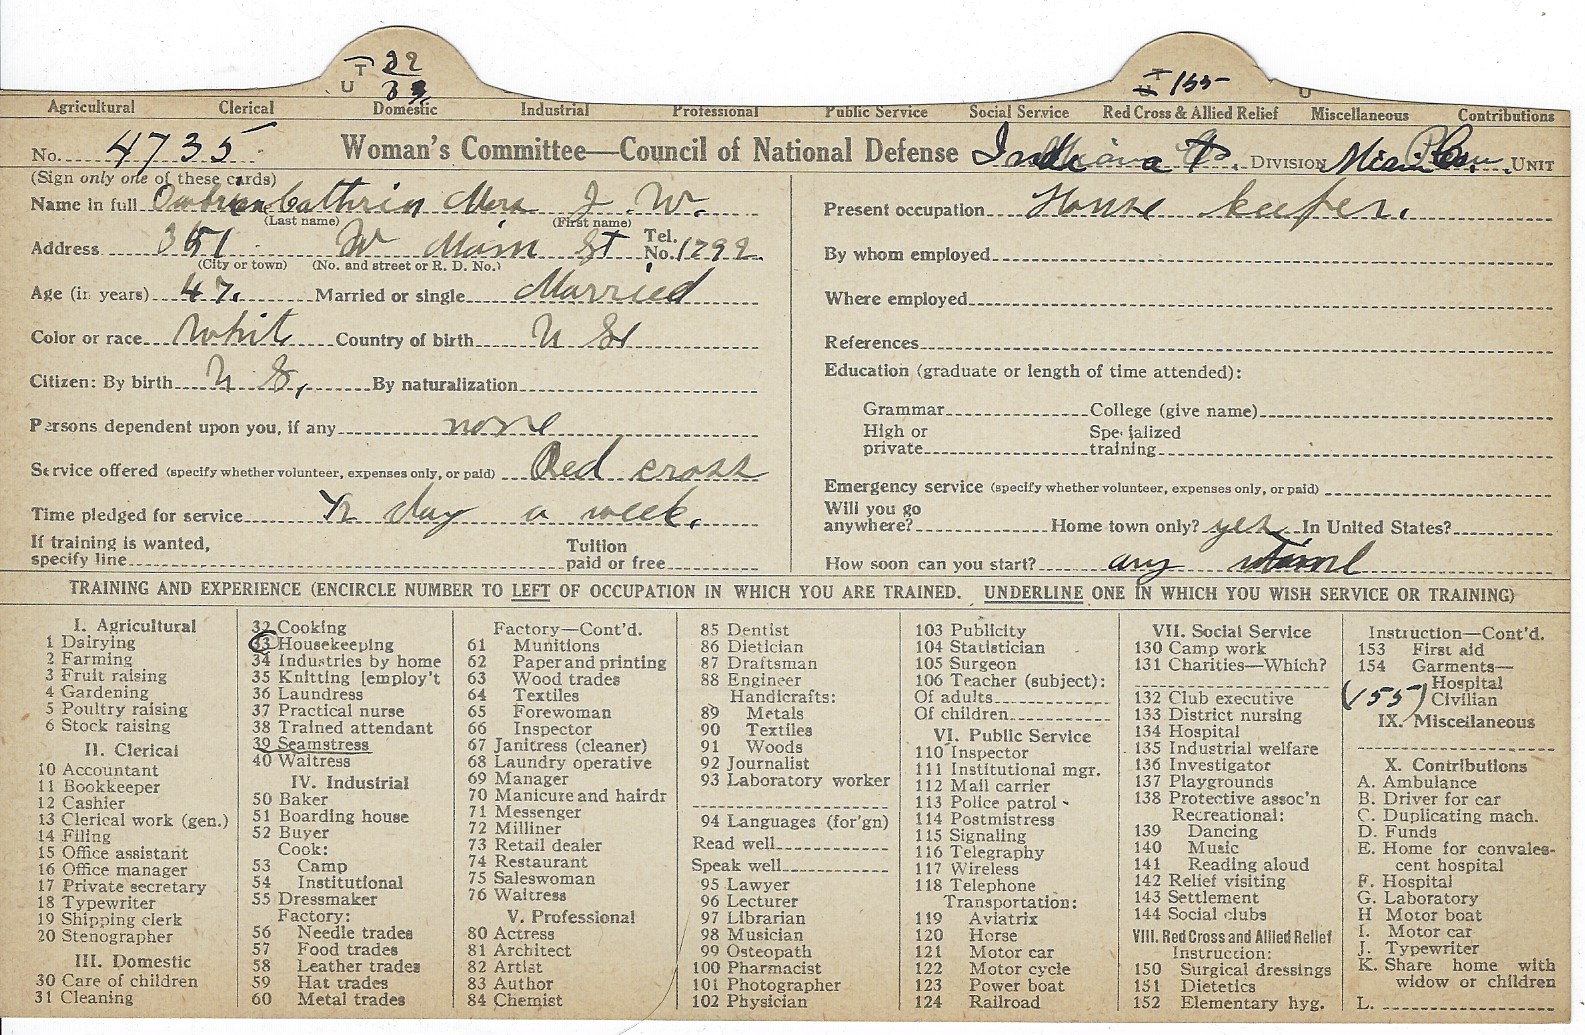 T 32
U
T 155
U
Agricultural Clerical Domestic Industrial Professional Public Service Social Service Red Cross & Allied Relief Miscellaneous Contributions
No. 4735 Woman's Committee—Council of National Defense Indiana DIVISION UNIT
(Sign only one of these cards)
Name in full Cathrin Mrs J. W.
(Last name) (First name)
Address 351 W Main St Tel. No. 1292
(City or town) (No. and street or R. D. No.)
Age (in years) 47. Married or single Married
Color or race Whit Country of birth U S
Citizen: By birth U S, By naturalization
Persons dependent upon you, if any none
Service offered (specify whether volunteer, expenses only, or paid) Red cross
Time pledged for service ½ day a week.
If training is wanted, specify line Tuition paid or free
Present occupation House keeper.
By whom employed
Where employed
References
Education (graduate or length of time attended):
Grammar College (give name)
High or private Specialized training
Emergency service (specify whether volunteer, expenses only, or paid)
Will you go anywhere? Home town only? yes In United States?
How soon can you start? any time
TRAINING AND EXPERIENCE (ENCIRCLE NUMBER TO LEFT OF OCCUPATION IN WHICH YOU ARE TRAINED. UNDERLINE ONE IN WHICH YOU WISH SERVICE OR TRAINING)
I. Agricultural
1 Dairying
2 Farming
3 Fruit raising
4 Gardening
5 Poultry raising
6 Stock raising
II. Clerical
10 Accountant
11 Bookkeeper
12 Cashier
13 Clerical work (gen.)
14 Filing
15 Office assistant
16 Office manager
17 Private secretary
18 Typewriter
19 Shipping clerk
20 Stenographer
III. Domestic
30 Care of children
31 Cleaning
32 Cooking
33 Housekeeping
34 Industries by home
35 Knitting [employ't
36 Laundress
37 Practical nurse
38 Trained attendant
39 Seamstress
40 Waitress
IV. Industrial
50 Baker
51 Boarding house
52 Buyer
Cook:
53 Camp
54 Institutional
55 Dressmaker
Factory:
56 Needle trades
57 Food trades
58 Leather trades
59 Hat trades
60 Metal trades
Factory—Cont'd.
61 Munitions
62 Paper and printing
63 Wood trades
64 Textiles
65 Forewoman
66 Inspector
67 Janitress (cleaner)
68 Laundry operative
69 Manager
70 Manicure and hairdr
71 Messenger
72 Milliner
73 Retail dealer
74 Restaurant
75 Saleswoman
76 Waitress
V. Professional
80 Actress
81 Architect
82 Artist
83 Author
84 Chemist
85 Dentist
86 Dietician
87 Draftsman
88 Engineer
Handicrafts:
89 Metals
90 Textiles
91 Woods
92 Journalist
93 Laboratory worker
94 Languages (for'gn)
Read well
Speak well
95 Lawyer
96 Lecturer
97 Librarian
98 Musician
99 Osteopath
100 Pharmacist
101 Photographer
102 Physician
103 Publicity
104 Statistician
105 Surgeon
106 Teacher (subject):
Of adults
Of children
VI. Public Service
110 Inspector
111 Institutional mgr.
112 Mail carrier
113 Police patrol
114 Postmistress
115 Signaling
116 Telegraphy
117 Wireless
118 Telephone
Transportation:
119 Aviatrix
120 Horse
121 Motor car
122 Motor cycle
123 Power boat
124 Railroad
VII. Social Service
130 Camp work
131 Charities—Which?
132 Club executive
133 District nursing
134 Hospital
135 Industrial welfare
136 Investigator
137 Playgrounds
138 Protective assoc'n
Recreational:
139 Dancing
140 Music
141 Reading aloud
142 Relief visiting
143 Settlement
144 Social clubs
VIII. Red Cross and Allied Relief
Instruction:
150 Surgical dressings
151 Dietetics
152 Elementary hyg.
Instruction—Cont'd.
153 First aid
154 Garments—
Hospital
155 Civilian
IX. Miscellaneous
X. Contributions
A. Ambulance
B. Driver for car
C. Duplicating mach.
D. Funds
E. Home for convales-
cent hospital
F. Hospital
G. Laboratory
H Motor boat
I. Motor car
J. Typewriter
K. Share home with
widow or children
L.